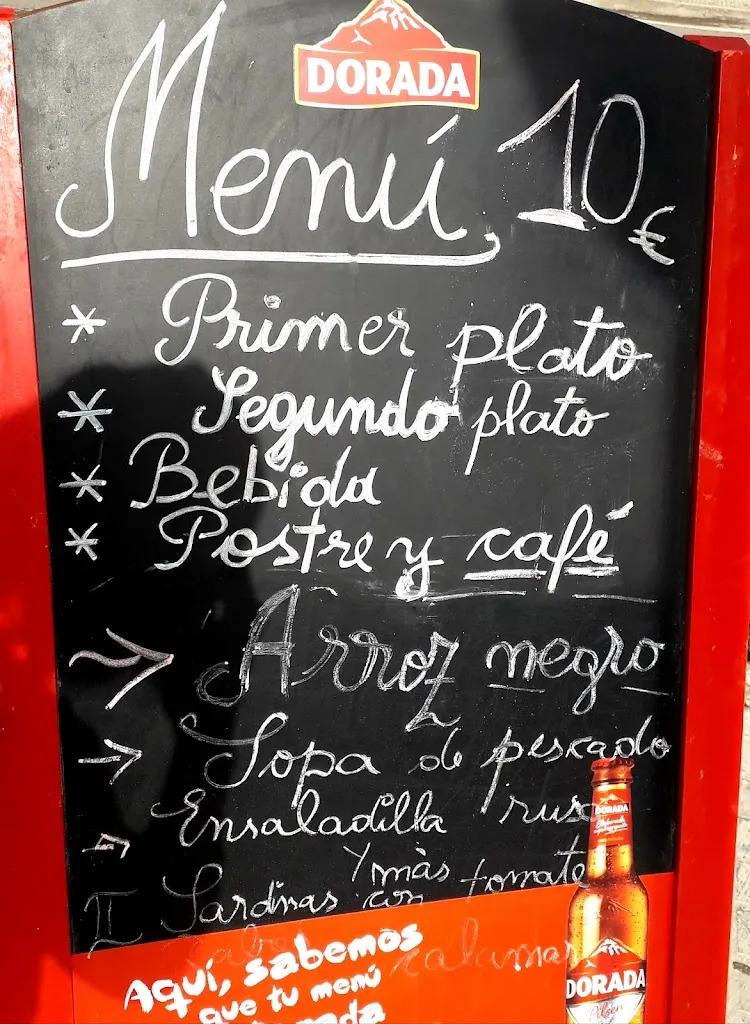 DORADA
Menú 10 €
* Primer plato
* Segundo plato
* Bebida
* Postre y café
→ Arroz negro
→ Sopa de pescado
Ensaladilla rusa
y màs
II Sardinas con tomate
calamar
Aquí, sabemos
que tu menú
DORADA
DORADA
Pilsen